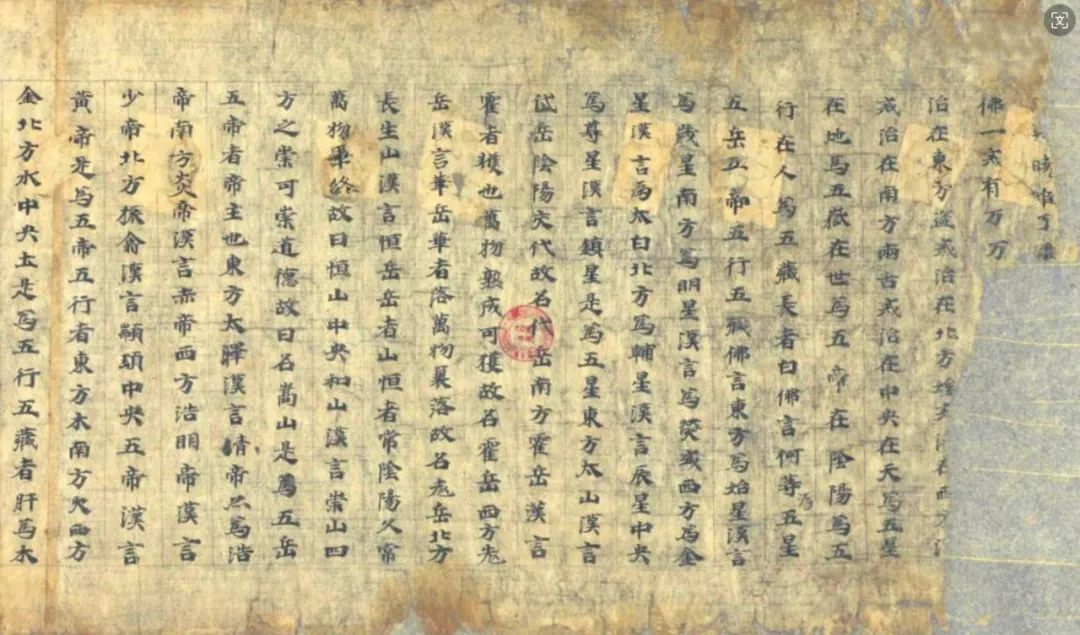 曉唯
佛一本有万万
治在東方盜戒治在北方婬
戒治在南方兩舌戒治在中央在天為五星
在地為五嶽在世為五帝在陰陽為五
行在人為五藏長者曰佛言何等為五星
五岳五帝五行五藏佛言東方為始星漢言
為歲星南方為明星漢言為熒惑西方為金
星漢言為太白北方為輔星漢言辰星中央
為尊星漢言鎮星是為五星東方太山漢言
岱岳陰陽交代故名代岳南方霍岳漢言
霍者獲也萬物熟成可獲故名霍岳西方
岳漢言華岳華者落萬物衰落故名岳北方
長生山漢言恒岳岳者山恒者常陰陽久常
萬物畢終故曰恒山中央和山漢言崇山四
方之崇可崇道德故曰名嵩山是為五岳
五帝者帝主也東方太暤漢言青帝為浩
帝南方炎帝漢言赤帝西方浩明帝漢言
少帝北方振翕漢言顓頊中央五帝漢言
黃帝是為五帝五行者東方木南方火西方
金北方水中央土是為五行五藏者肝為木